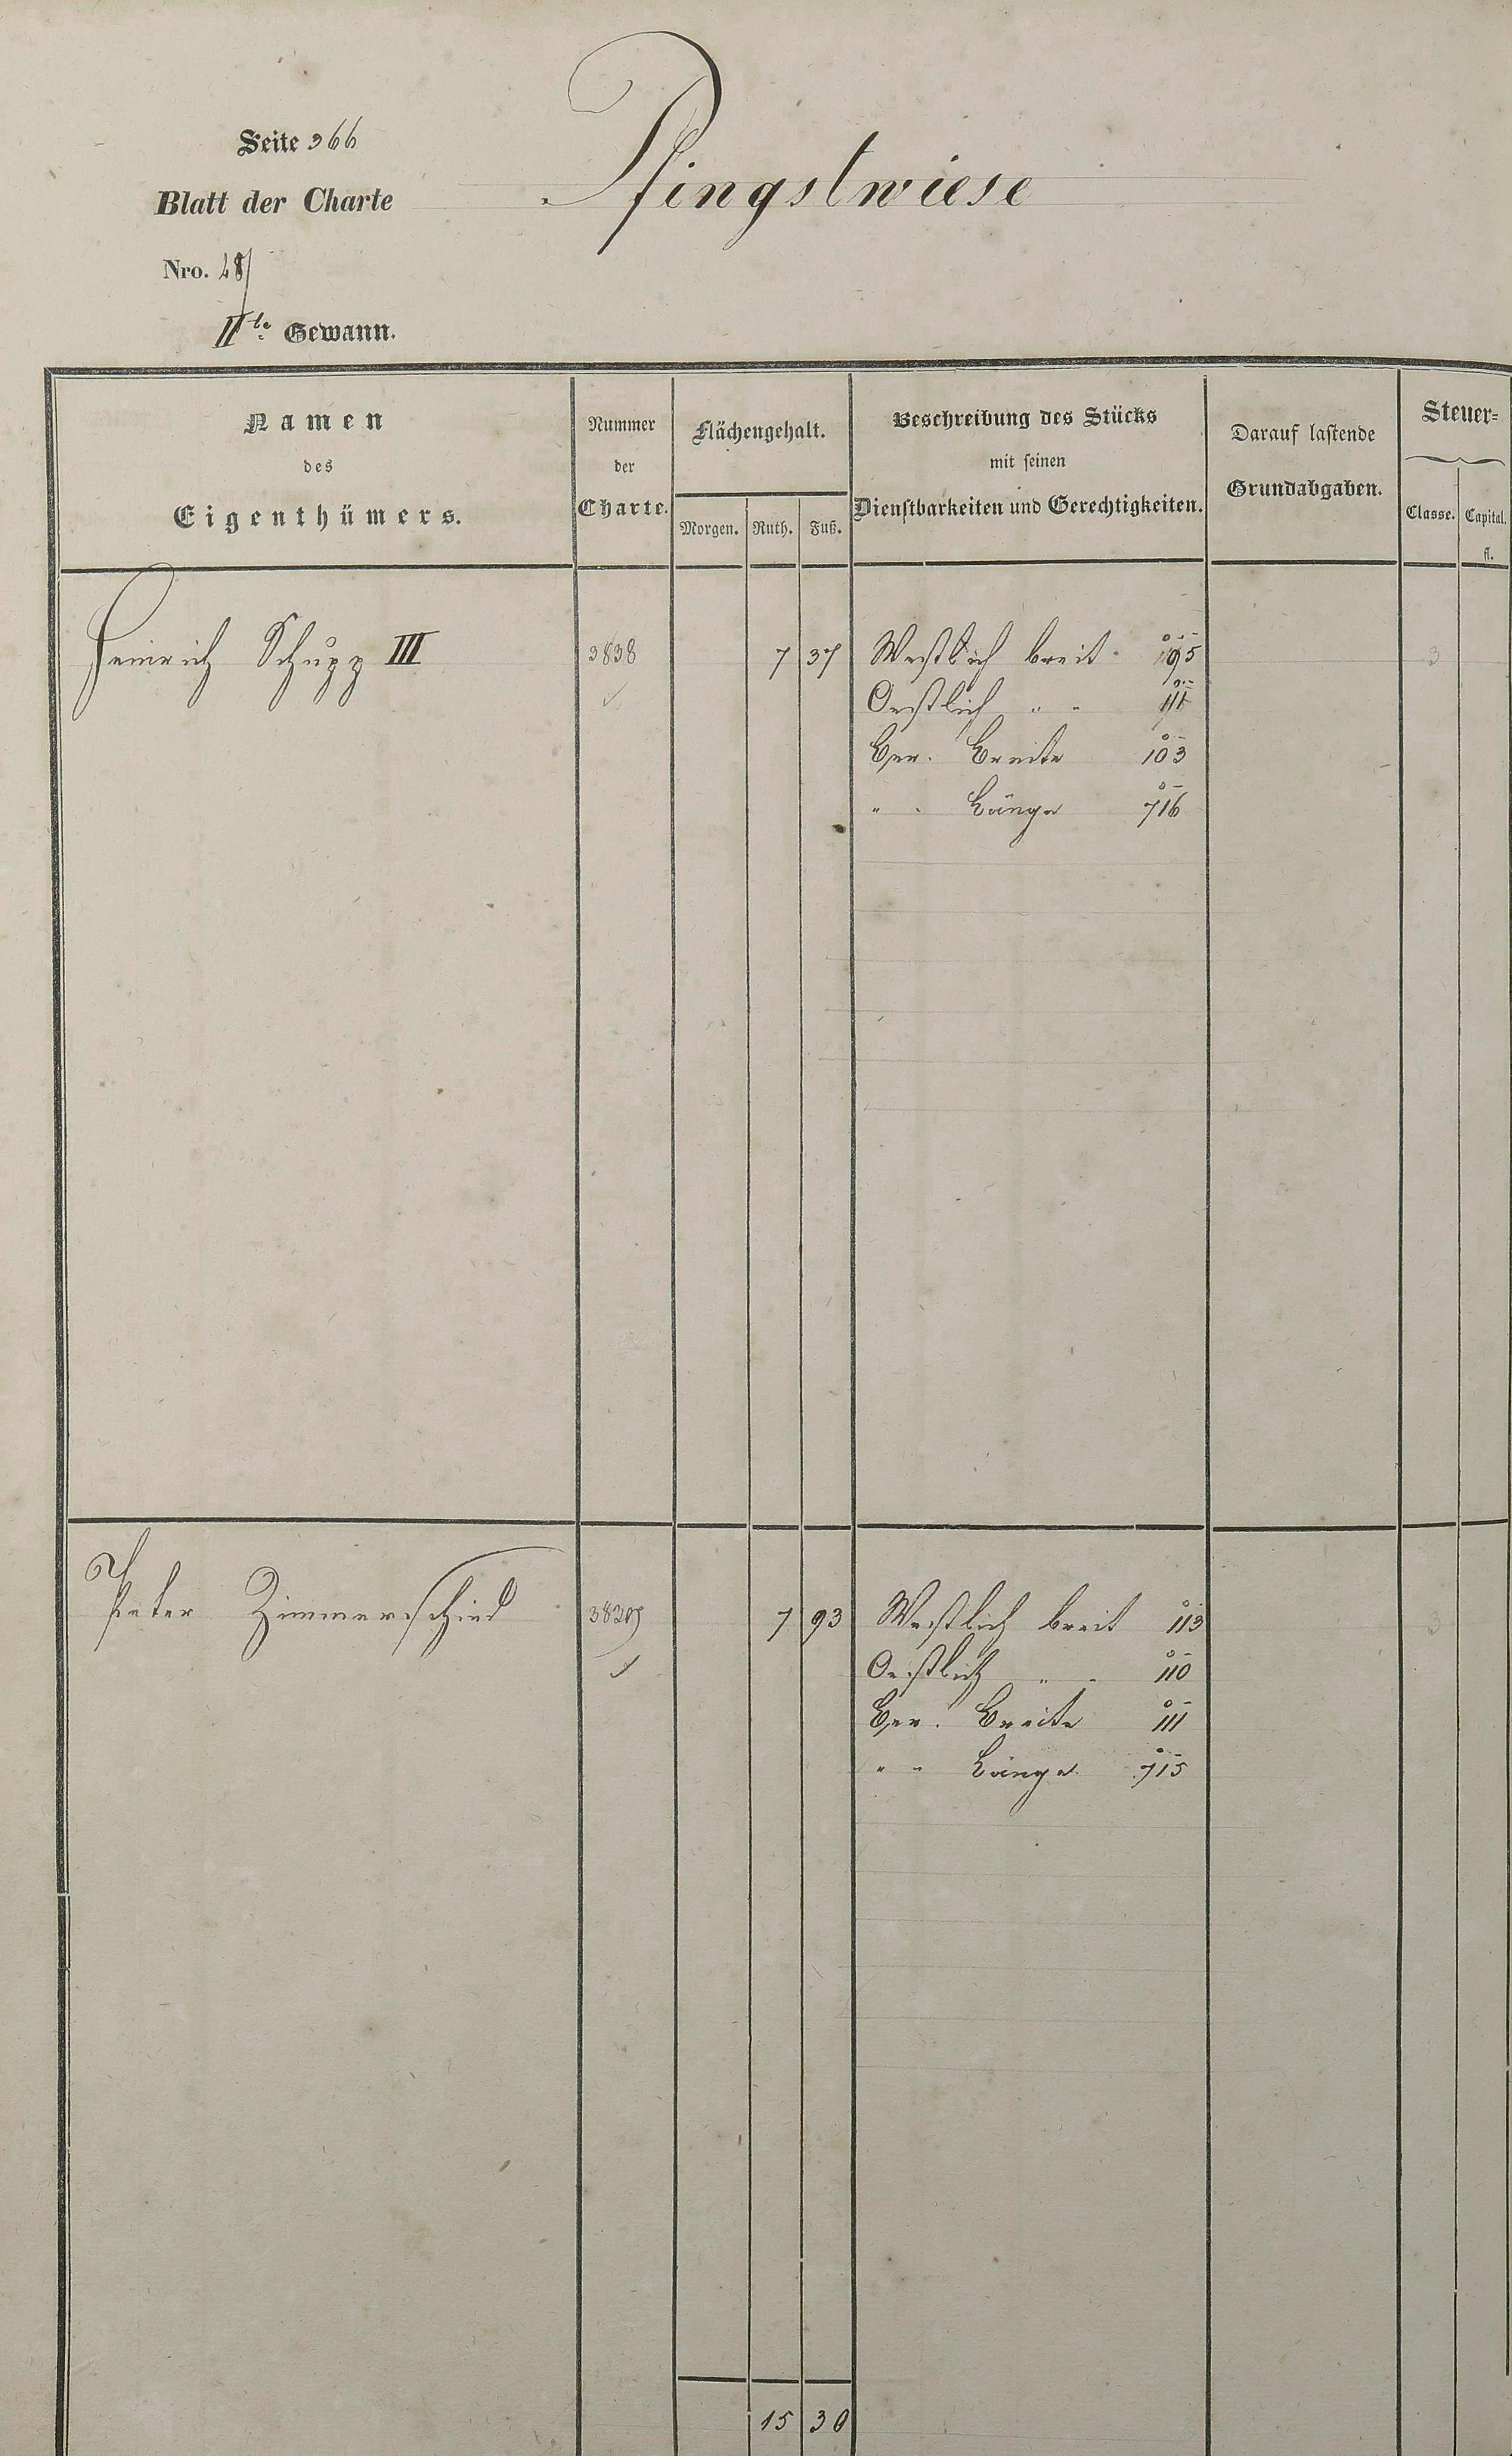 Seite 366
Pfingstwiese
Blatt der Charte
Nro. 48
IIte Gewann.
Namen
des
Eigenthümers.
Nummer
der
Charte.
Flächengehalt.
Morgen. Ruth. Fuß.
Beschreibung des Stücks
mit seinen
Dienstbarkeiten und Gerechtigkeiten.
Darauf lastende
Grundabgaben.
Steuer=
Classe. Capital.
fl.
Heinrich Schupp III 3838 7 37 Westlich breit 195 3
Oestlich " " 111
Ger. Breite 103
" " Länge 716
Peter Zimmerschied 7 93 Westlich breit 113 3
Oestlich " " 110
Ger. Breite 111
" " Länge 715
15 30